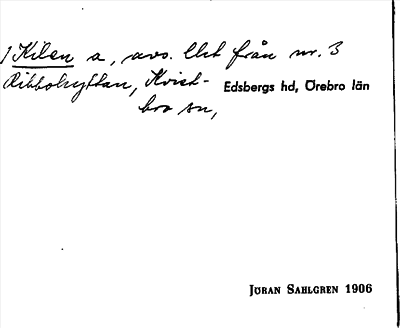 1 Kilen a, avs. Uet från nr. 3
Ribbohyttan, Kvist- Edsbergs hd, Örebro län
bro sn,
JÖRAN SAHLGREN 1906